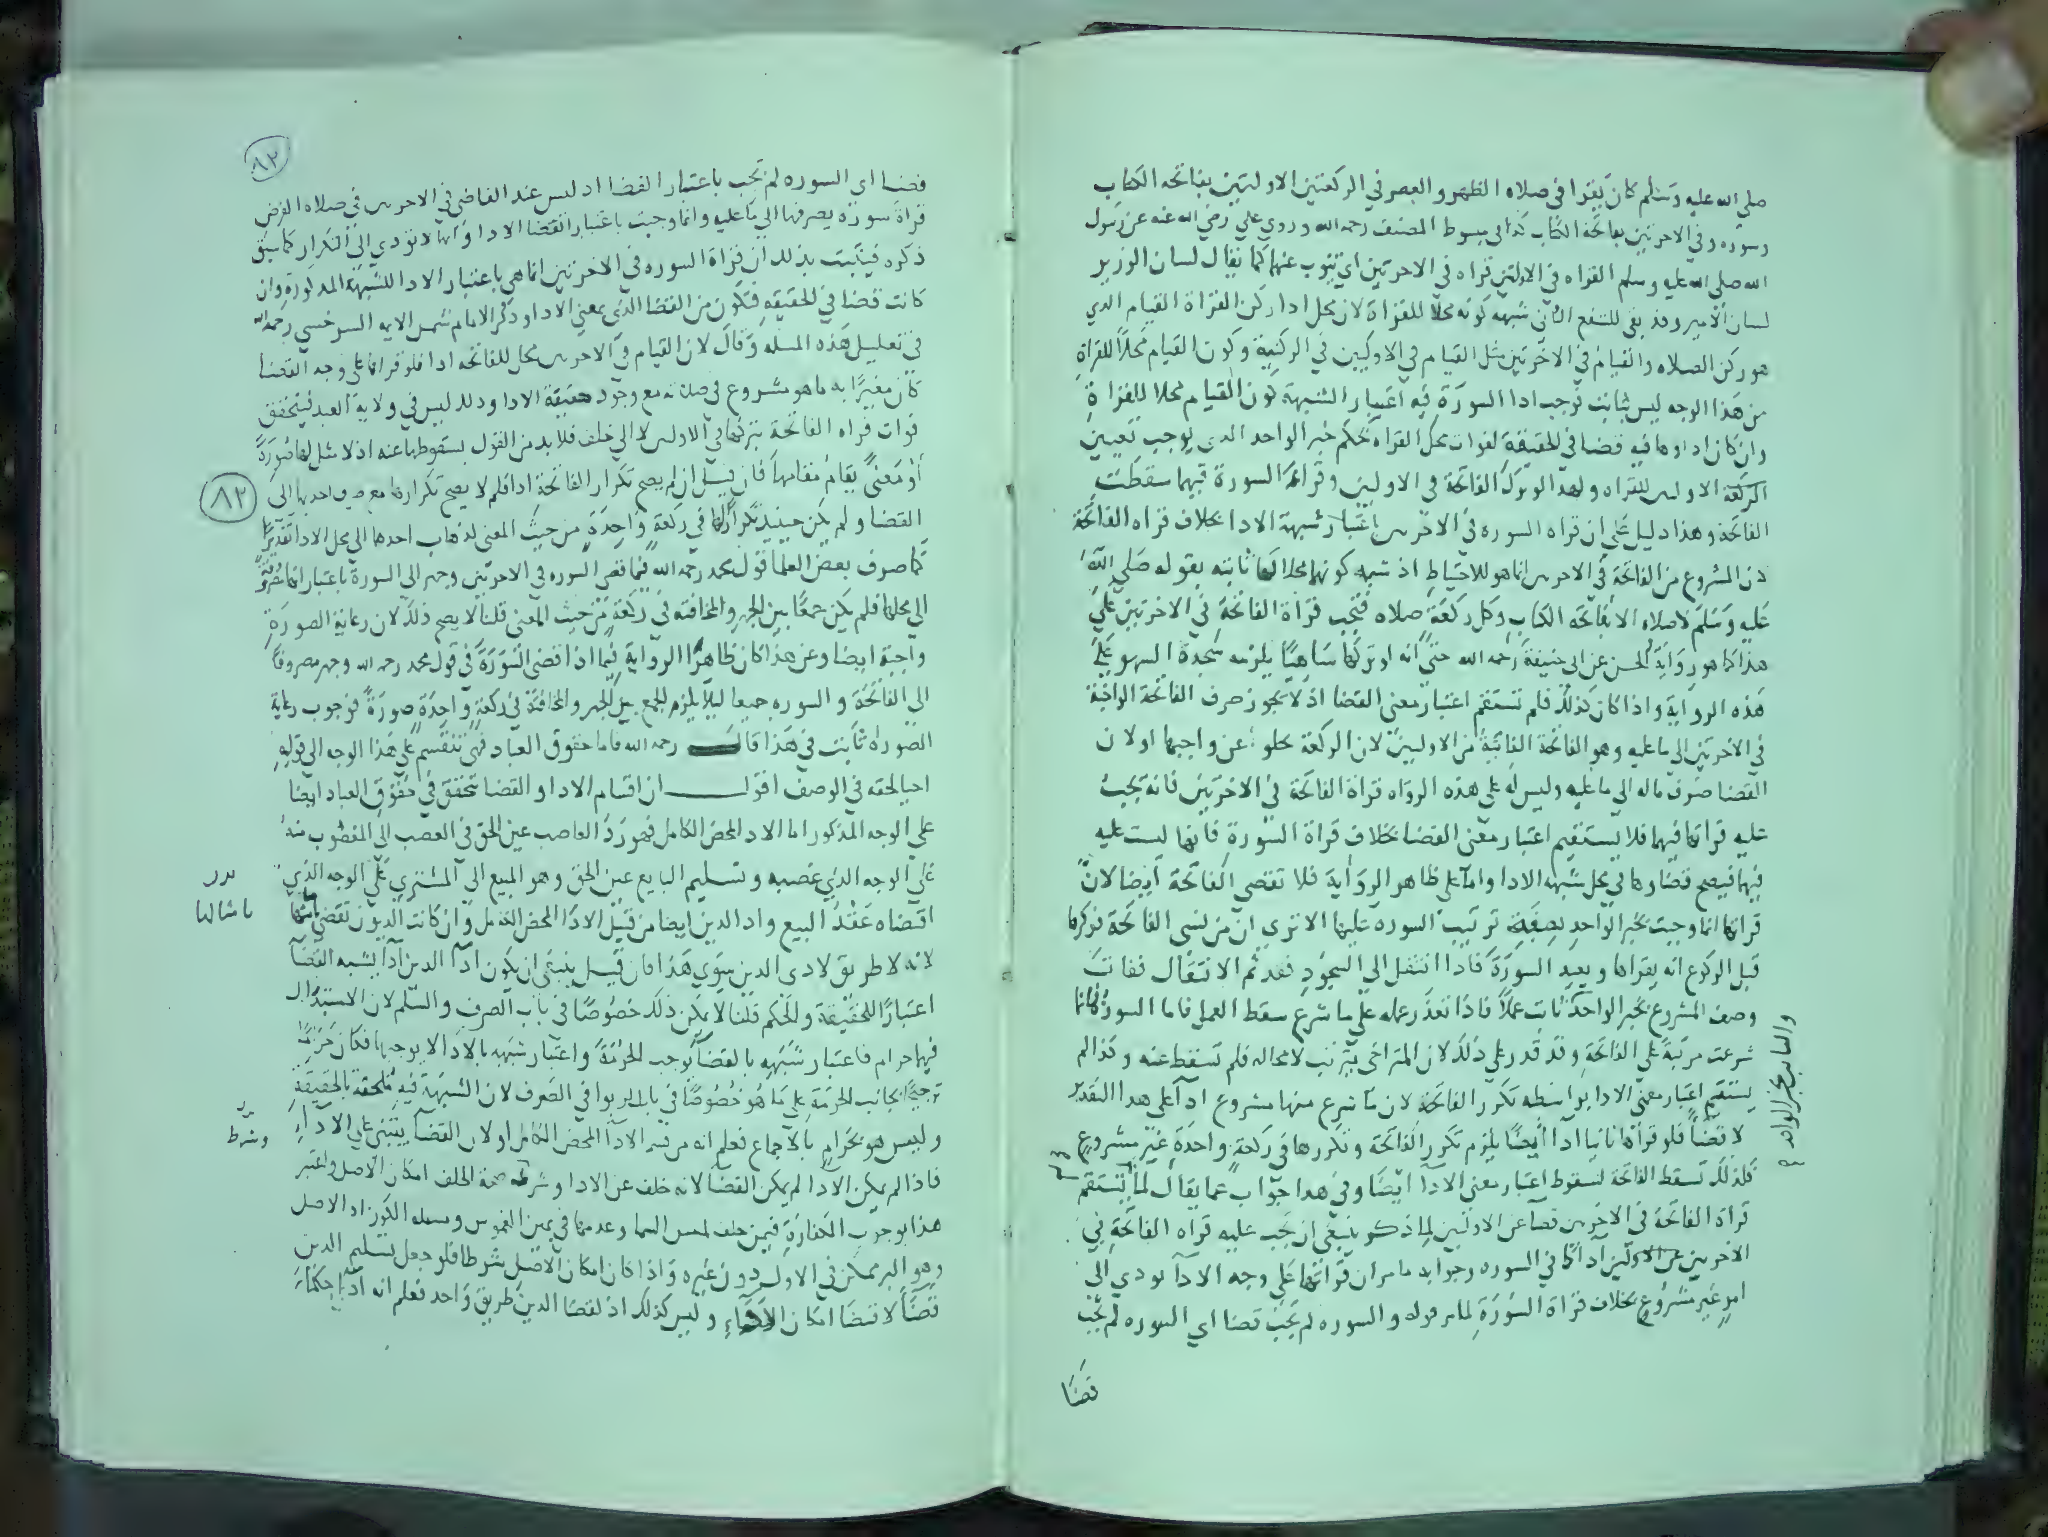 صلى الله عليه وسلم كان يقرا في صلاه الظهر والعصر في الركعتين الاوليين بفاتحه الكتاب
وسوره وفي الاخريين بفاتحة الكتاب كذا في مبسوط المصنف رحمه الله وروي علي رضي الله عنه عن رسول
الله صلى الله عليه وسلم القراه في الاوليين قراه في الاخريين اي تنوب عنهما كما يقال لسان الوزير
لسان الأمير وقد بقي للشفع الثاني شبهه كونه محلا للقراة لان محل ادا ركن القراة القيام الذي
هو ركن الصلاه والقيام في الاخريين مثل القيام في الاوليين في الركنية وكون القيام محلاً للقراة
من هذا الوجه ليس بثابت فوجب ادا السورة فيه اعتبار الشبهة كون القيام محلا للقراة
وان كان اداوها فيه قضا في الحقيقة لفوات محل القراه بحكم خبر الواحد الذي يوجب تعيين
الركعة الاوليين للقراه ولهذا لو ترك الفاتحة في الاوليين وقراة السورة فيهما سقطت
الفاتحة وهذا دليل على ان قراه السوره في الاخريين باعتبار شبهة الادا بخلاف قراه الفاتحة
لان المشروع من الفاتحة في الاخريين انما هو للاحتياط اذ شبهه كونهما محلا لها ثابته بقوله صلى الله
عليه وسلم لا صلاه الا بفاتحه الكتاب وكل ركعة صلاه فتجب قراة الفاتحة في الاخريين على
هذا كما هو رواية الحسن عن ابي حنيفة رحمه الله حتى انه لو تركها ساهيا يلزمه سجدة السهو على
هذه الرواية واذا كان كذلك فلم تستقم اعتبار معنى القضا اذ لا يجوز صرف الفاتحة الواجبة
في الاخريين الى ما عليه وهو الفاتحة الفائتة من الاوليين لان الركعة تخلو عن واجبها او لان
القضا صرف ماله الى ما عليه وليس له على هذه الرواه قراة الفاتحة في الاخريين فانه يجب
عليه قراتها فيهما فلا يستقيم اعتبار معنى القضا بخلاف قراة السورة فانها ليست عليه
فيهما فيصح قضاوها في محل شبهه الادا واما على ظاهر الرواية فلا تقضي الفاتحة ايضا لان
قراتها انما وجبت بخبر الواحد بصفة ترتيب السوره عليها الا ترى ان من نسي الفاتحة فذكرها
قبل الركوع انه يقراها ويعيد السورة فاذا انتقل الى السجود فقد تم الانتقال ففات
وصف المشروع بخبر الواحد عملاً فاذا تعذر عمله على ما شرع سقط العمل فاما السورة فانما
شرعت مرتبة على الفاتحة وقد قدر على ذلك لان المتراخي يترتب لا محاله فلم تسقط عنه وكذا لم
يستقم اعتبار معنى الادا بواسطه تكرر الفاتحة لان ما شرع منها مشروع ادآ على هذا التقدير
لا قضا فلو قراها ثانيا ادآ ايضا يلزم تكرر الفاتحة وتكررها في ركعة واحدة غير مشروع
فلذلك تسقط الفاتحة لسقوط اعتبار معنى الادآ ايضا وفي هذا جواب عما يقال لما لم تستقم
قراة الفاتحة في الاخريين قضا عن الاوليين لما ذكر ينبغي ان يجب عليه قراه الفاتحة في
الاخريين عن الاوليين ادا كما في السوره وجوابه ما مر ان قراتها على وجه الادآ تودي الى
امر غير مشروع بخلاف قراة السورة لما مر قوله والسوره لم تجب قضا اي السوره لم تجب
قضا
قضا اي السوره لم تجب باعتبار القضا اذ ليس عند القاضي في الاخريين في صلاه الفرض
قراة سورة يصرفها الى ما عليه وانما وجبت باعتبار القضا الادا وانها لا تودي الى التكرار كما سبق
ذكره فيثبت بذلك ان قراة السوره في الاخريين انما هي باعتبار الادا للشبهة المذكورة وان
كانت قضا في الحقيقة فتكون من القضا الذي بمعنى الادا وذكر الامام شمس الايمه السرخسي رحمه الله
في تعليل هذه المسله وقال لان القيام في الاخريين محل للفاتحه ادا فلو قراها على وجه القضا
كان مغيرا به ما هو مشروع في صلاته مع وجود حقيقة الادا وذلك ليس في ولاية العبد فيتحقق
فوات قراه الفاتحة بتركها في الاوليين لا الى خلف فلا بد من القول بسقوطها عنه اذ لا مثل لها صورة
أو معنى يقام مقامها فان قيل ان لم يصح تكرار الفاتحة ادا فلم لا يصح تكرارها مع صرف احديها الى
القضا ولم يكن حينيذ تكرارها في ركعة واحدة من حيث المعنى لذهاب احدها الى محل الادا تقديرًا
كما صرف بعض العلما قول محمد رحمه الله فيما قضى السوره في الاخريين وجهر الى السورة باعتبار انها مصروفة
الى محلها فلم يكن جمعًا بين الجهر والمخافته في ركعة من حيث المعنى قلنا لا يصح ذلك لان رعاية الصورة
واجبة ايضا وعن هذا كان ظاهر الرواية فيما اذا قضى السورة في قول محمد رحمه الله وجهر مصروفا
الى الفاتحة والسوره جميعا ليلا يلزم الجمع بين الجهر والمخافتة في ركعة واحدة صورة فوجوب رعاية
الصوراه ثابت في هذا قال رحمه الله فاما حقوق العباد فهي تنقسم على هذا الوجه الى قوله
احيا لحقه في الوصف اقول ان اقسام الادا والقضا تتحقق في حقوق العباد ايضا
على الوجه المذكور اما الادا المحض الكامل فهو رد الغاصب عين الحق في الغصب الى المغصوب منه
على الوجه الذي غصبه وتسليم البايع عين الحق وهو المبيع الى المشتري على الوجه الذي
اقتضاه عقد البيع وادا الدين ايضا من قبيل الادا المحض الكامل وان كانت الديون تقضى بامثالها
لانه لا طريق لادى الدين سوى هذا فان قيل ينبغي ان يكون ادآ الدين ادآ يشبه القضا
اعتبارًا للحقيقة والحكم قلنا لا يمكن ذلك خصوصًا في باب الصرف والسلم لان الاستبدال
فيهما حرام فاعتبار شبهه بالقضا يوجب الحرمة واعتبار شبهه بالادا لا يوجبها فكان حراما
ترجيحا لجانب الحرمة على ما هو خصوصًا في باب الربوا في الصرف لان الشبهة فيه ملحقة بالحقيقة
وليس هو بحرام بالاجماع فعلم انه من قسم الادآ المحض الكامل او لان القضا يبتني على الادآء
فاذا لم يمكن الادآ لم يمكن القضا لانه خلف عن الادا وشرط صحة الخلف امكان الاصل واعتبر
هذا بوجوب الكفارة فيمن حلف لمس السما وعدمها في يمين الغموس ومسله الكوز اذ الاصل
وهو البر ممكن في الاول دون غيره واذا كان امكان الاصل شرطا فلو جعل تسليم الدين
قضاءً لاقتضا امكان الاداء وليس كذلك اذ لقضا الدين طريق واحد فعلم انه ادآ حكما
٨٢
٨٢
بامثالها
وشرط
والثابت بخبر الواحد